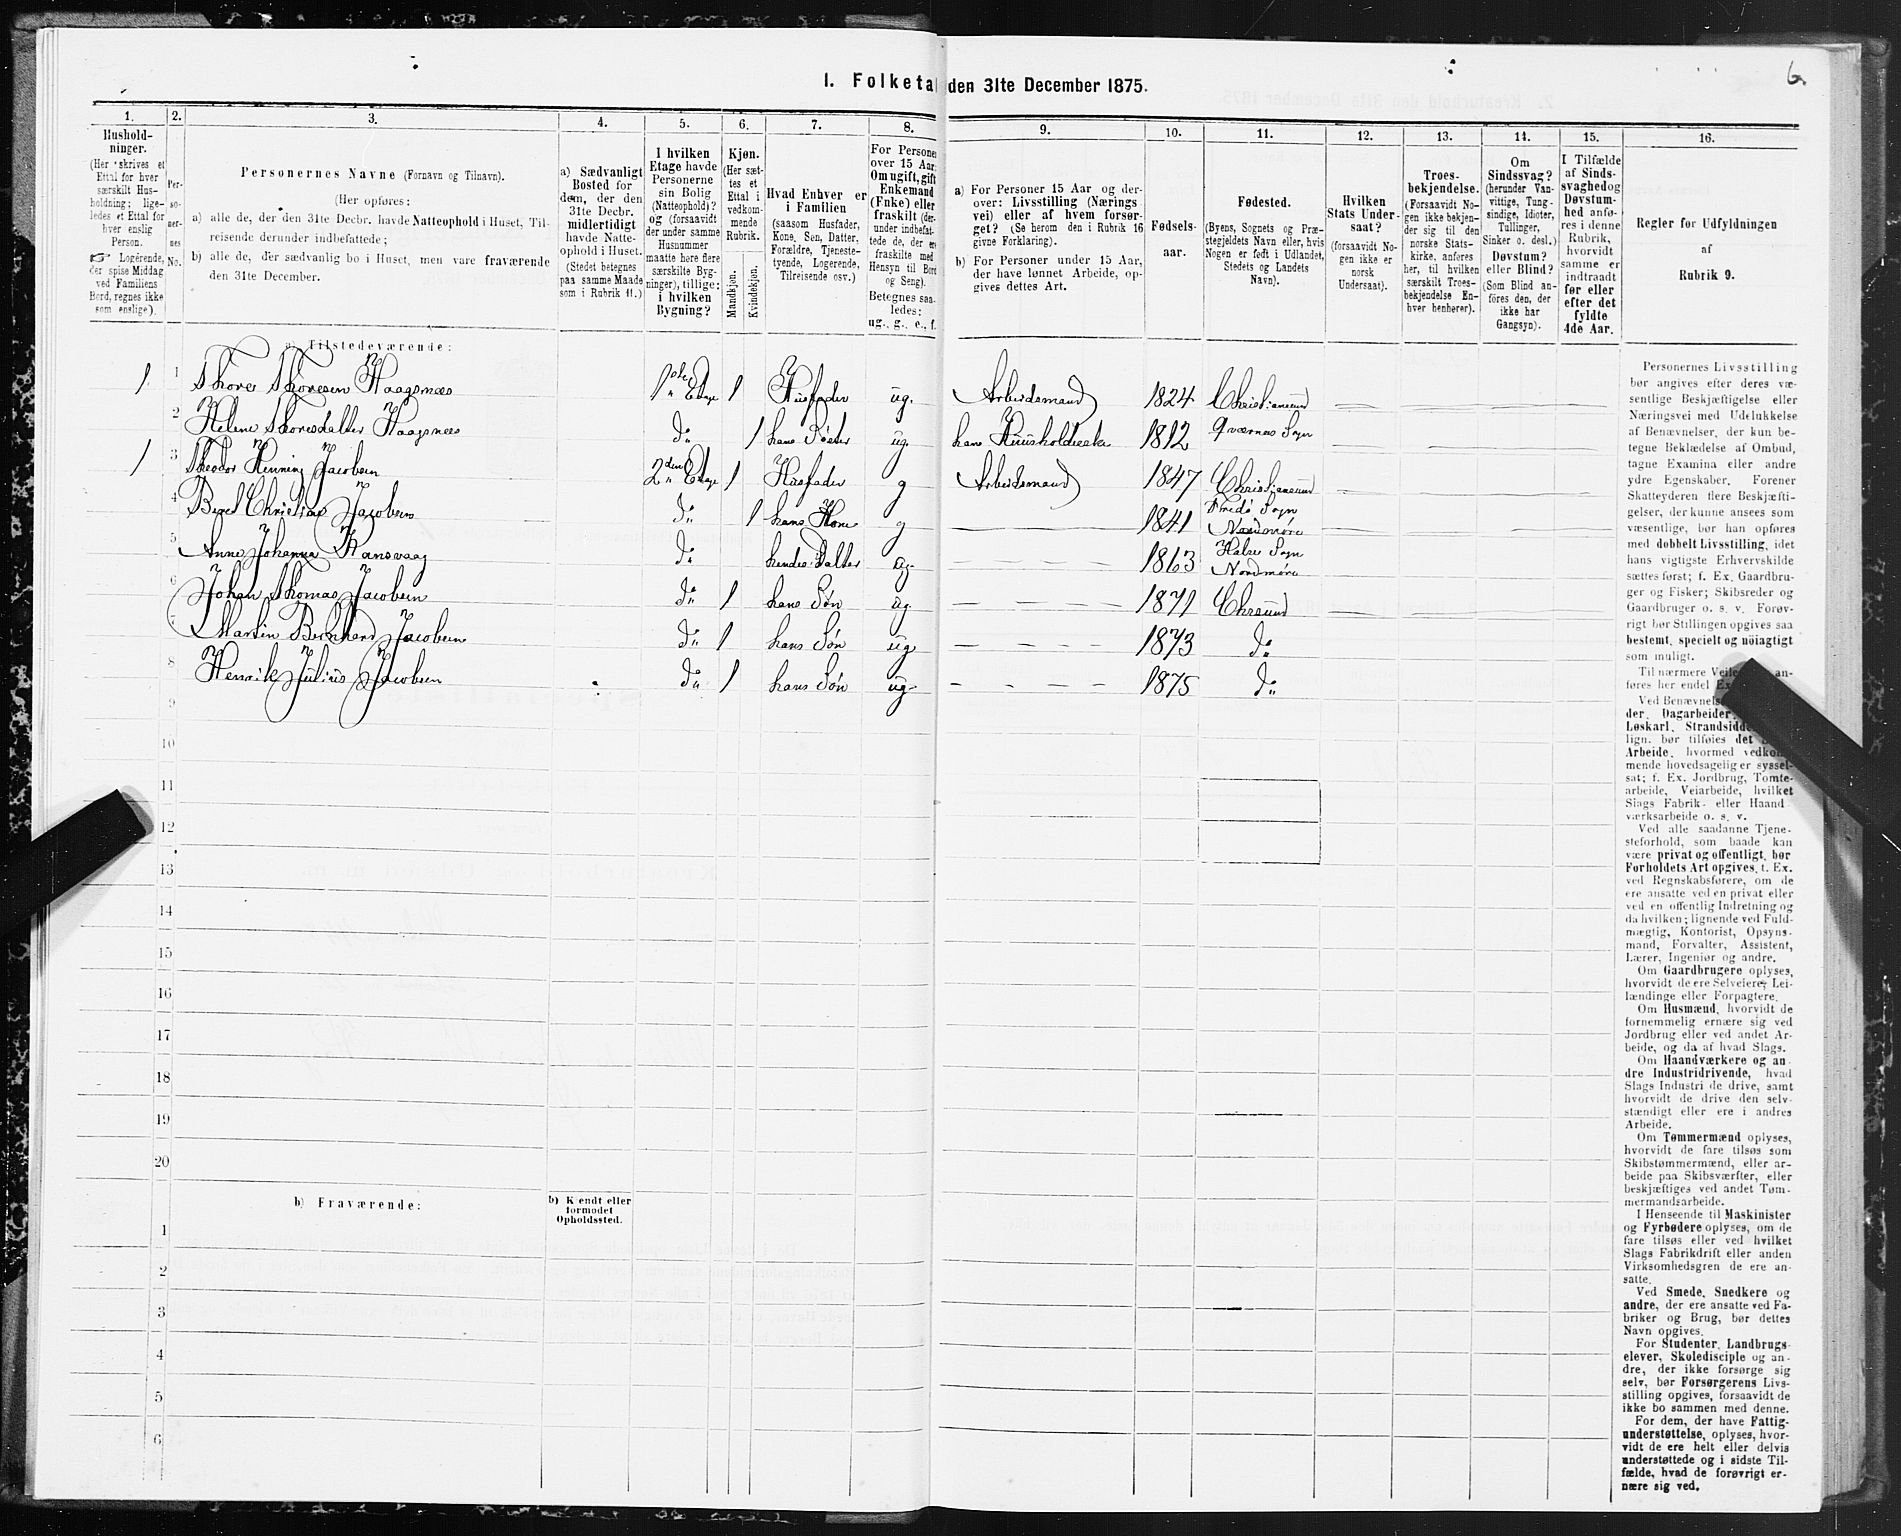 I. Folketal den 31te December 1875.
6.
1. 2. 3. 4. 5. 6. 7. 8. 9. 10. 11. 12. 13. 14. 15. 16.
Hushold-
ninger.
(Her skrives et
Ettal for hver
særskilt Hus-
holdning; lige-
ledes et Ettal for
hver enslig
Person.
☞ Logerende,
der spise Middag
ved Familiens
Bord, regnes ikke
som enslige).
Per-
so-
ner-
nes
No.
Personernes Navne (Fornavn og Tilnavn).
(Her opføres:
a) alle de, der den 31te Decbr. havde Natteophold i Huset, Til-
reisende derunder indbefattede;
b) alle de, der sædvanlig bo i Huset, men vare fraværende
den 31te December.
a) Sædvanligt
Bosted for
dem, der den
31te Decbr.
midlertidigt
havde Natte-
ophold i Huset.
(Stedet betegnes
paa samme Maade
som i Rubrik 11.)
I hvilken
Etage havde
Personerne
sin Bolig
(Natteophold)?
og (forsaavidt
der under samme
Husnummer
maatte høre flere
særskilte Byg-
ninger), tillige:
i hvilken
Bygning?
Kjøn.
(Her sæt-
tes et
Ettal i
vedkom-
mende
Rubrik.
Mandkjøn.
Kvindekjøn.
Hvad Enhver er
i Familien
(saasom Husfader,
Kone, Søn, Datter,
Forældre, Tjeneste-
tyende, Logerende,
Tilreisende osv.)
For Personer
over 15 Aar:
Om ugift, gift
Enkemand
(Enke) eller
fraskilt (der-
under indbefat-
tede de, der ere
fraskilte med
Hensyn til Bord
og Seng).
Betegnes saa-
ledes:
ug., g., e., f.
a) For Personer 15 Aar og der-
over: Livsstilling (Nærings
vei) eller af hvem forsør-
get? (Se herom den i Rubrik 16
givne Forklaring).
b) For Personer under 15 Aar,
der have lønnet Arbeide, op-
gives dettes Art.
Fødsels-
aar.
Fødested.
(Byens, Sognets og Præ-
stegjeldets Navn eller, hvis
Nogen er født i Udlandet,
Stedets og Landets
Navn).
Hvilken
Stats Under-
saat?
(forsaavidt No-
gen ikke er
norsk
Undersaat).
Troes-
bekjendelse.
(Forsaavidt No-
gen ikke bekjen-
der sig til den
norske Stats-
kirke, anføres
her, til hvilken
særskilt Troes-
bekjendelse En-
hver henhører).
Om
Sindssvag?
(herunder Van-
vittige, Tung-
sindige, Idioter,
Tullinger,
Sinker o. desl.)
Døvstum?
eller Blind?
(Som Blind an-
føres den, der
ikke har
Gangsyn).
I Tilfælde
af Sinds-
svaghed og
Døvstum-
hed anfø-
res i denne
Rubrik,
hvorvidt
samme er
indtraadt
før eller
efter det
fyldte
4de Aar.
Regler for Udfyldningen
af
Rubrik 9.
a) Tilstedeværende:
1 1 Thore Thoresen Haagsnæs 1ste Etage 1 Husfader ug. Arbeidsmand 1824 Christiansund
2 Helene Thoresdatter Haagsnæs do 1 hans Søster ug hans Huusholderske 1812 Qværnes Sogn
1 3 Theodor Henning Jacobsen 2den Etage 1 Husfader g Arbeidsmand 1847 Christiansund
4 Christine Jacobsen do 1 hans Kone g 1841 Sogn Nordmøre
5 Anne Johanna do hendes Datter ug 1863 Halse Sogn Nordmøre
6 Johan Thomas Jacobsen do 1 hans Søn ug. 1871 Chrsund
7 Martin Bernhard Jacobsen do 1 hans Søn ug 1873 do
8 Henrik Julius Jacobsen do 1 hans Søn ug 1875 do
9
10
11
12
13
14
15
16
17
18
19
20
b) Fraværende:
b) Kjendt eller
formodet
Opholdssted.
1
2
3
4
5
6
Personernes Livsstilling
bør angives efter deres væ-
sentlige Beskjæftigelse eller
Næringsvei med Udelukkelse
af Benævnelser, der kun be-
tegne Beklædelse af Ombud,
tagne Examina eller andre
ydre Egenskaber. Forener
Skatteyderen flere Beskjæfti-
gelser, der kunne ansees som
væsentlige, bør han opføres
med dobbelt Livsstilling, idet
hans vigtigste Erhvervskilde
sættes først; f. Ex. Gaardbru-
ger og Fisker; Skibsreder og
Gaardbruger o. s. v. Forøv-
rigt bør Stillingen opgives saa
bestemt, specielt og nöiagtigt
som muligt.
Til nærmere Veile an-
føres her endel Ex
Ved Benævnels
der, Dagarbeider,
Løskarl, Strandsidde
lign. bør tilføies det
Arbeide, hvormed vedkom-
mende hovedsagelig er syssel-
sat; f. Ex. Jordbrug, Tomte-
arbeide, Veiarbeide, hvilket
Slags Fabrik- eller Haand
værksarbeide o. s. v.
Ved alle saadanne Tjene-
steforhold, som baade kan
være privat og offentligt, bør
Forholdets Art opgives, f. Ex.
ved Regnskabsførere, om de
ere ansatte ved en privat eller
ved en offentlig Indretning og
da hvilken; lignende ved Fuld-
mægtig, Kontorist, Opsyns-
mand, Forvalter, Assistent,
Lærer, Ingeniør og andre.
Om Gaardbrugere oplyses,
hvorvidt de ere Selveiere, Lei-
lændinge eller Forpagtere.
Om Husmænd, hvorvidt de
fornemmelig ernære sig ved
Jordbrug eller ved andet Ar-
beide, og da af hvad Slags.
Om Haandværkere og an
dre Industridrivende, hvad
Slags Industri de drive, samt
hvorvidt de drive den selv-
stændigt eller ere i andres
Arbeide.
Om Tømmermænd oplyses,
hvorvidt de fare tilsøs som
Skibstømmermænd, eller ar-
beide paa Skibsværfter, eller
beskjæftiges ved andet Tøm-
mermandsarbeide.
I Henseende til Maskinister
og Fyrbødere oplyses, om de
fare tilsøs eller ved hvilket
Slags Fabrikdrift eller anden
Virksomhedsgren de ere an-
satte.
Ved Smede, Snedkere og
andre, der ere ansatte ved Fa-
briker og Brug, bør dettes
Navn opgives.
For Studenter, Landbrugs-
elever, Skoledisciple og an-
dre, der ikke forsørge sig
selv, bør Forsørgerens Livs-
stilling opgives, forsaavidt de
ikke bo sammen med denne.
For dem, der have Fattig-
understøttelse, oplyses, hvor-
vidt de ere helt eller delvis
understøttede og i sidste Til-
fælde, hvad de forøvrigt er-
nære sig ved.